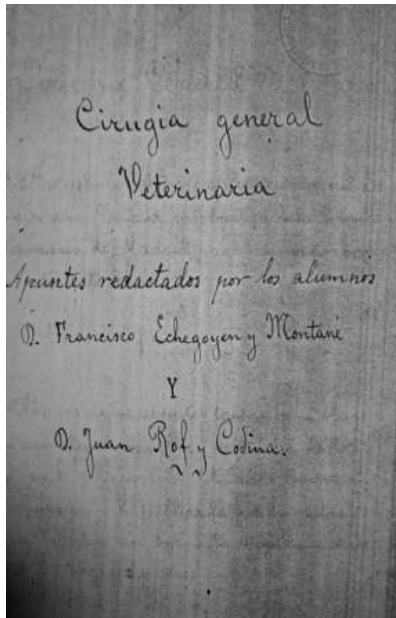 Cirugia general
Veterinaria
Apuntes redactados por los alumnos
D. Francisco Echegoyen y Montané
Y
D. Juan Rof y Codina.